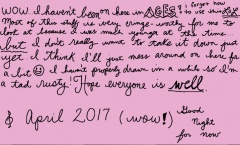 WOW. I haven't been on here in AGES & I forget how to use things
Most of this stuff is very cringe-worthy for me to
look at because I was much younger at this time...
but I don't really want to take it down just
yet. I think I'll just mess around on here for
a bit ☺ I haven't properly drawn in a while so I'm
a tad rusty! Hope everyone is well.
April 2017 (wow!)
Good
Night
for now